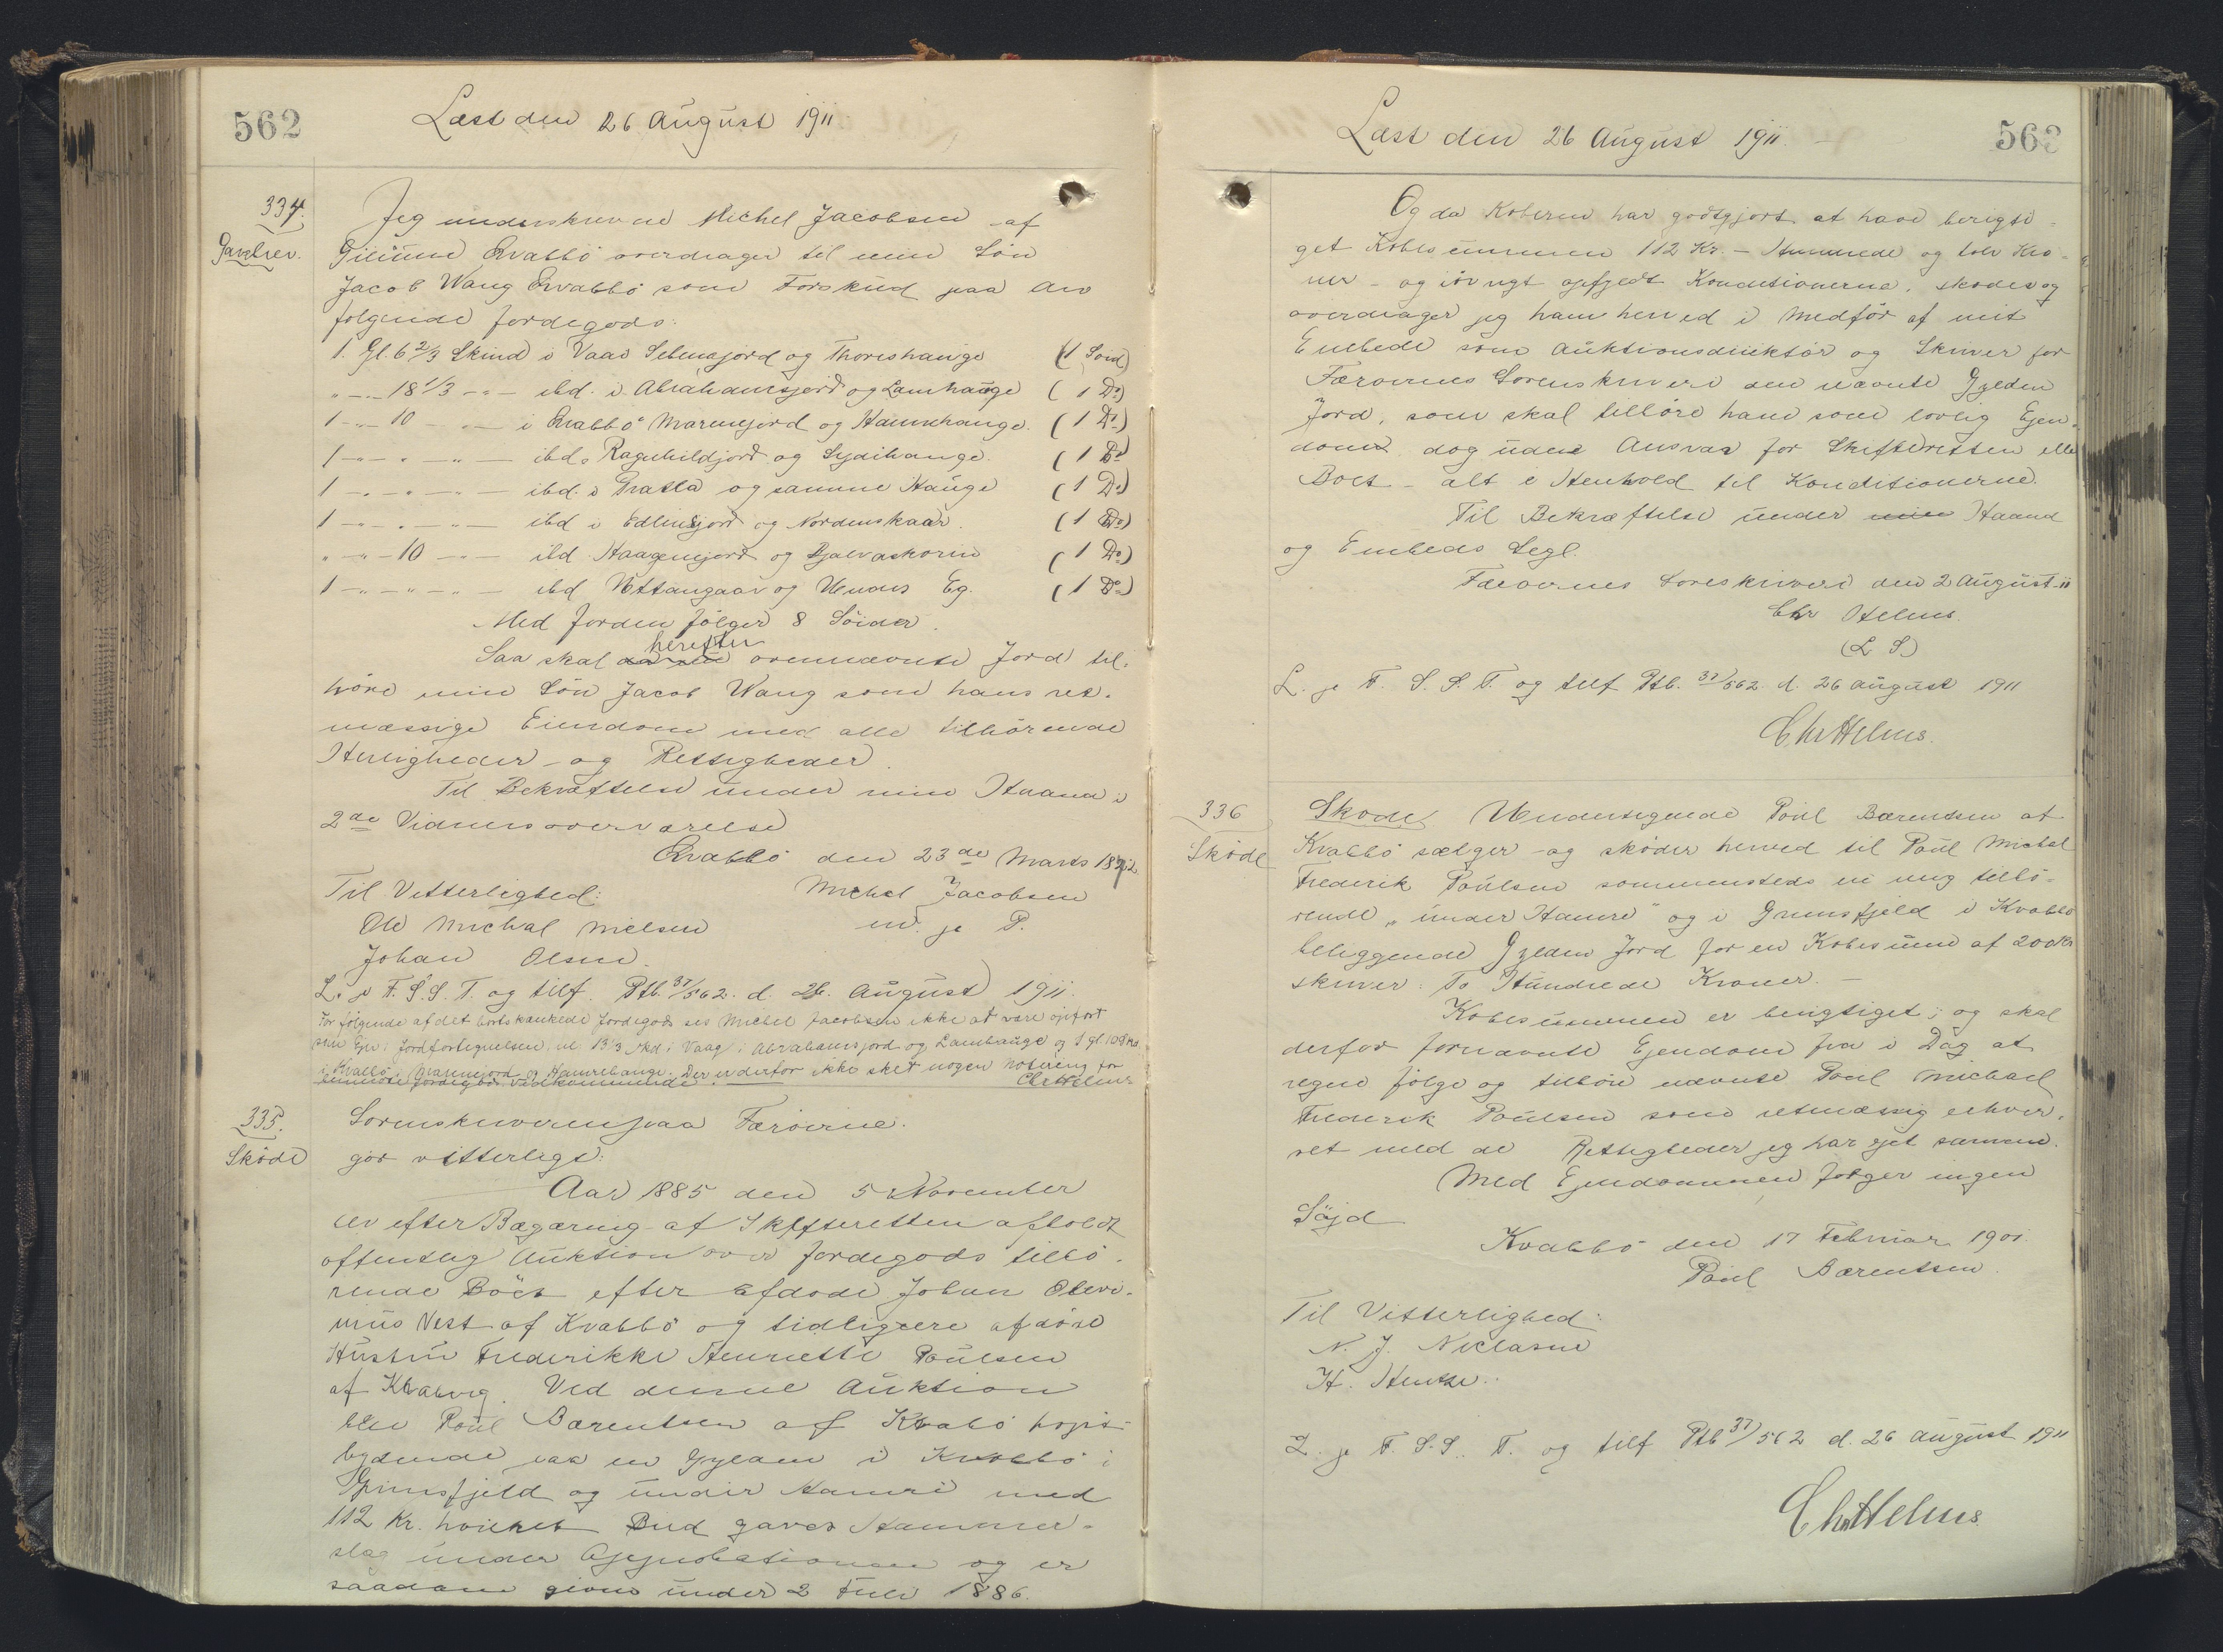 562
Læst den 26 August 1911
334.
Gavebrev.
Jeg underskrevne Michel Jacobsen af
Qvalbö overdrager til min Sön
Jacob Wang Qvalbö som Forskud paa Arv
fölgende Jordegods:
1. Gl. 6 2/3 Skind i Vaag Selmajord og Thoreshauge (1 Söid)
" - " - 18 1/3 - " - ibd. i Abrahamsjord og Lamhauge ( 1 Do)
1 - " - 10 - " - i Qvalbö Marmejord og Hamrehauge. ( 1 Do)
1 - " - " - " - ibd. Ragnhildjord og Sydihauge. ( 1 Do)
1 - " - " - " - ibd. i og samme Hauge ( 1 Do)
1 - " - " - " - ibd i Edlinsjord og Nordenskaar. ( 1 Do)
" - " - 10 - " - ibd Haagenjord og ( 1 Do)
1 - " - " - " - ibd og Eg. ( 1 Do)
Med Jorden fölger 8 Söider.
herefter
Saa skal ovennævnte Jord til-
höre min Sön Jacob Wang som hans ret-
mæssige Eiendom med alle tilhörende
Herligheder - og Rettigheder.
Til Bekræftelse under min Haand i
2de Vidners overværelse
Qvalbö den 23de Marts 1892
Til Vitterlighed: Michel Jacobsen
Ole Michal Nielsen m. p. P.
Johan Olsen.
L. p. F. S. S. T. og tilf. Ptb. 37/562. d. 26. August 1911.
For fölgende af det bortskænkede Jordegods ses Michel Jacobsen ikke at være opfört
som Ejer i Jordfortegnelsen, nl 13 1/3 Skd. i Vaag i Abrahamsjord og Lamhauge og 1 gl. 10 Skd.
i Kvalbö i Marmejord og Hamrehauge. Der er derfor ikke sket nogen Notering for
Jordegods vedkommende. Chr Helms
335.
Sköde
Sorenskriveren paa Færöerne.
gör vitterligt:
Aar 1885 den 5 November
blev efter Begæring af Skifteretten afholdt
offentlig Auktion over Jordegods tilhö-
rende Böet efter afdöde Johan
Vest af Kvalbö og tidligere afdöde
Hustru Frederikke Henriette Poulsen
af Kvalvig. Ved denne Auktion
blev Poul Barentsen af Kvalbö höjst-
bydende paa en Gylden i Kvalbö i
Grimsfjeld og undir Hamri med
112 Kr. hvilket Bud gaves Hammer-
slag under Approbationen og er
saadan given under 2 Juli 1886.
Læst den 26 August 1911.
563
Og da Köberen har godtgjort at have berigti-
get Köbesummen 112 Kr. - Hundrede og tolv Kro-
ner - og iövrigt opfyldt Konditionerne, sködes og
overdrager jeg ham herved i Medför af mit
Embede som Auktionsdirektör og Skriver for
Færöernes Sorenskriveri den nævnte Gylden
Jord, som skal tilhöre ham som lovlig Ejen-
dom, dog uden Ansvar for Skifteretten eller
Boet - alt i Henhold til Konditionerne.
Til Bekræftelse under min Haand
og Embeds Segl.
Færöernes Sorenskriveri den 2 August 11
Chr Helms.
(L S)
L. p. F. S. S. T. og tilf Ptb. 37/562. d. 26 August 1911
Chr Helms.
336
Sköde
Sköde Undertegnede Poul Barentsen af
Kvalbö sælger og sköder herved til Poul Michal
Frederik Poulsen sammesteds en mig tilhö-
rende "under Hamre" og i Grimsfjeld i Kvalbö
beliggende Gylden Jord for en Köbesum af 200 Kr
skriver: To Hundrede Kroner. -
Köbesummen er berigtiget; og skal
derfor fornævnte Ejendom fra i Dag at
regne fölge og tilhöre nævnte Poul Michael
Frederik Poulsen som retmæssig erhver-
vet med de Rettigheder jeg har ejet samme.
Med Ejendommen fölger ingen
Söjd
Kvalbö den 17 Februar 1901.
Poul Barentsen.
Til Vitterlighed:
N. J. Niclasen
H. Hentze.
L. p. F. S. S. T. og tilf Ptb 37/562 d. 26 August 1911
Chr Helms.